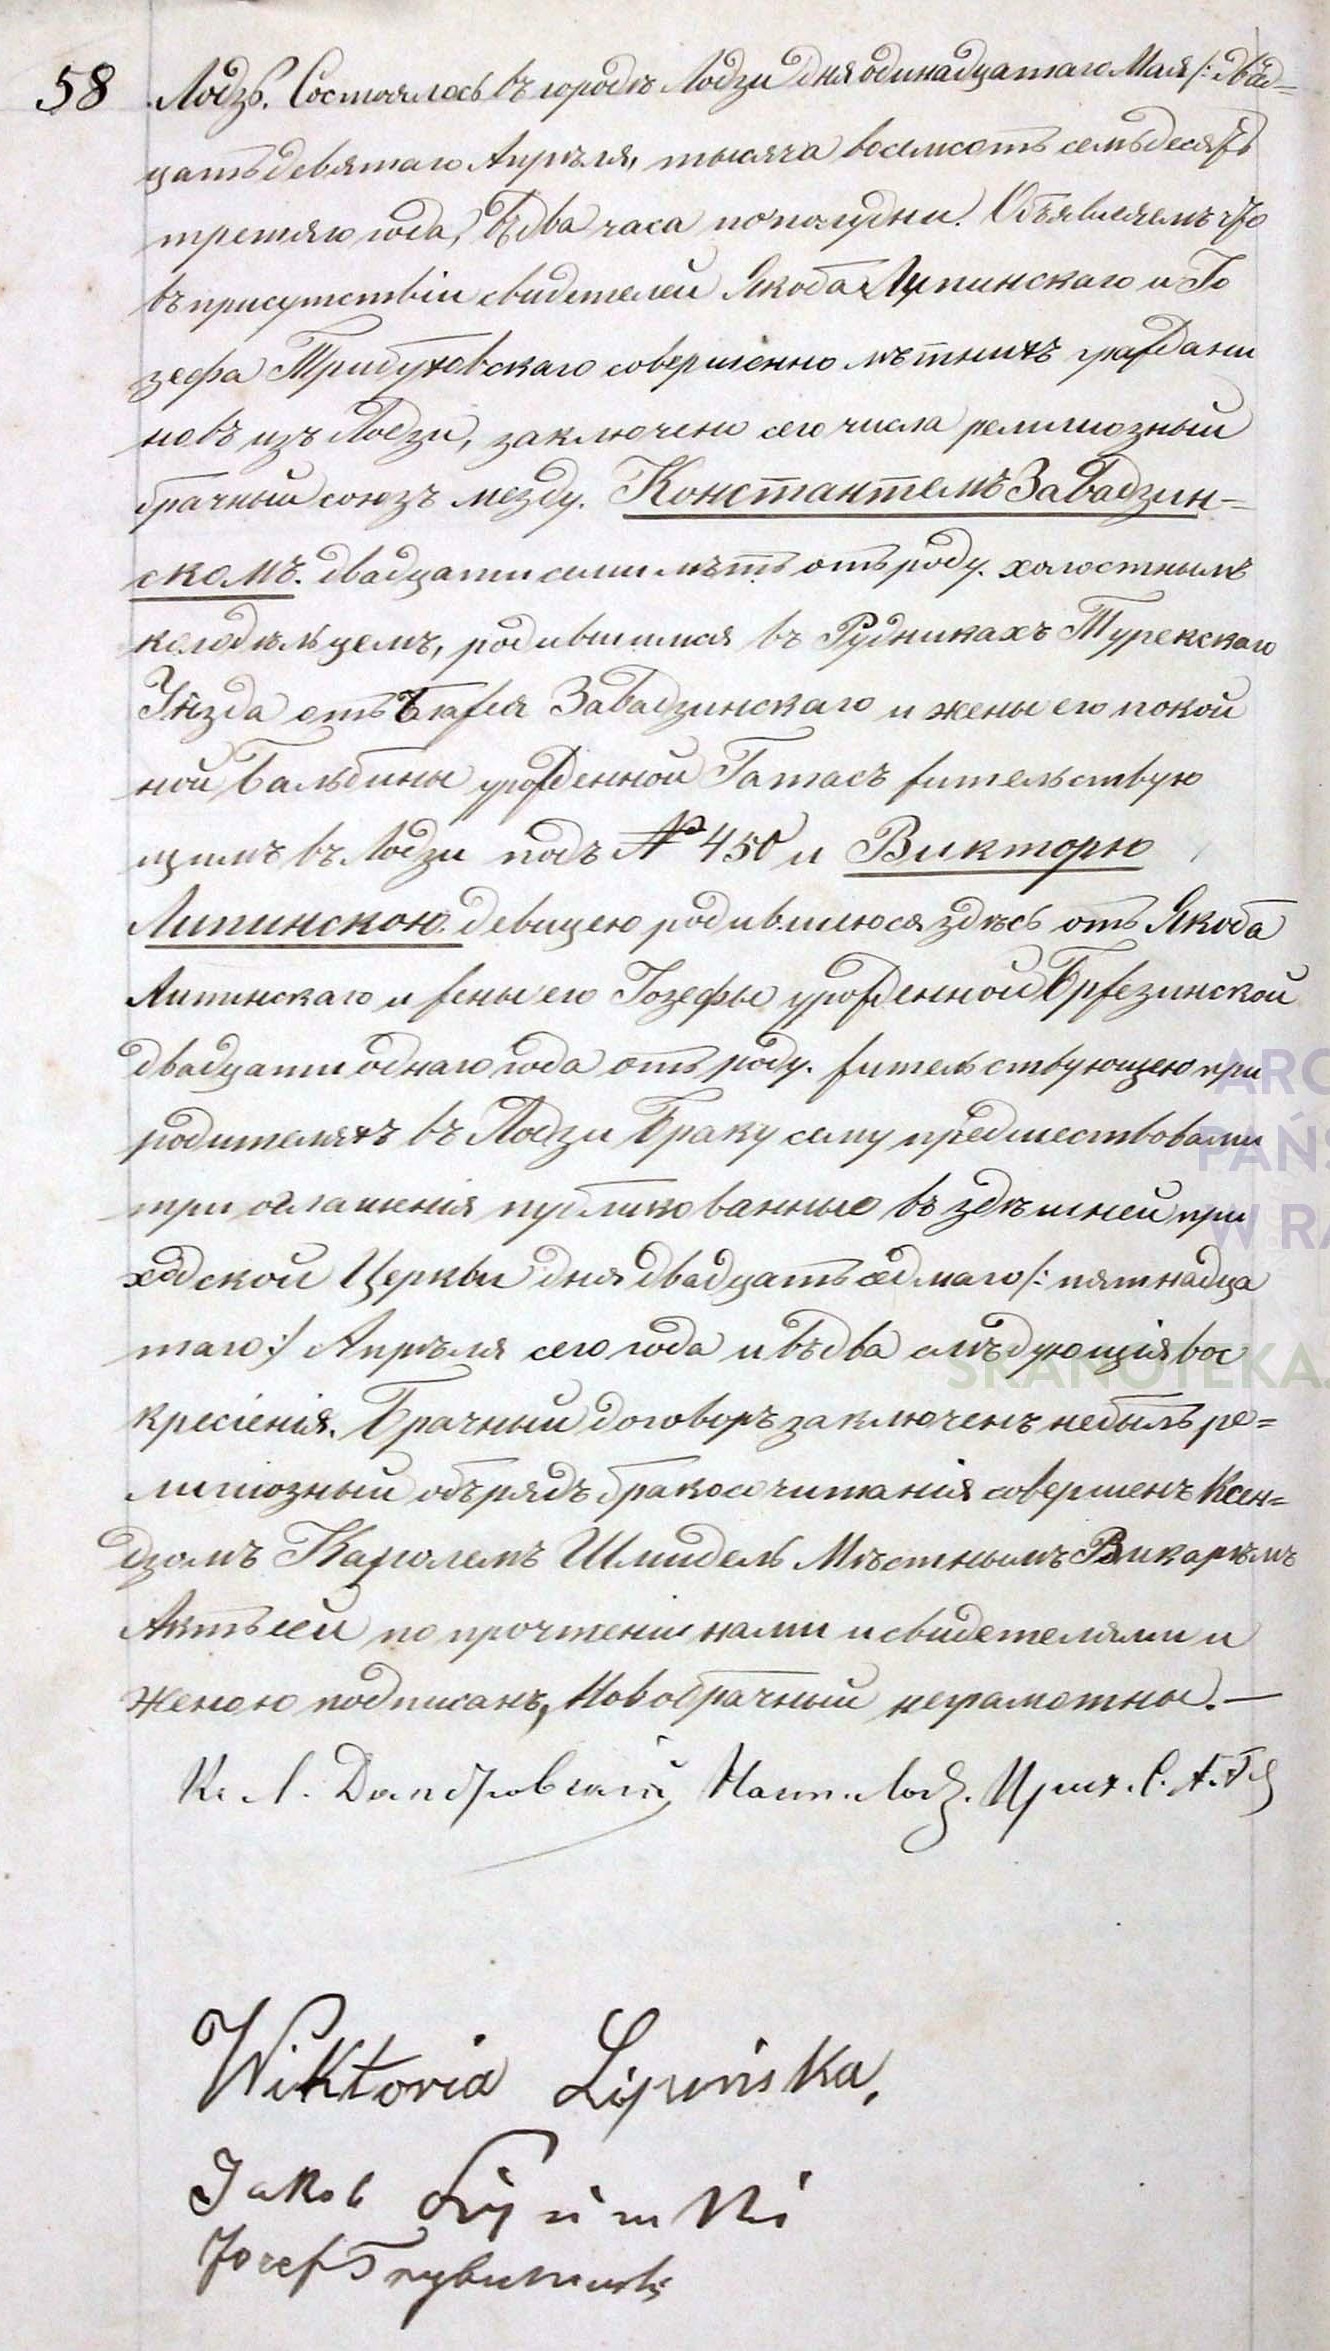 58 Лодзь. Состоялось въ городѣ Лодзи дня одинадцатаго Мая /: двад=
цать девятаго Апрѣля, тысяча восемсотъ семьдесятъ
третяго года, въ два часа пополудни. Объявляемъ что
въ присутствіи свидетелей Якоба Липинскаго и Іо
зефа Трибуховскаго совершенно лѣтнихъ граждани
новъ изъ Лодзи, заключенъ сего числа религіозный
брачный союзъ между. Константемъ Завадзин=
скомъ. двадцати семи лѣтъ отъ роду. холостнымъ
колодѣльцемъ, родившимся въ Рудникахъ Турекскаго
Уѣзда отъ Завадзинскаго и жены его покой
ной Бальбины урожденной Гатасъ жительствую
щимъ въ Лодзи подъ № 450 и Викторію
Липинскою. девицею родившеюся здѣсь отъ Якоба
Липинскаго и жены его Іозефы урожденной Бржезинской
двадцати однаго года отъ роду. жительствующею при
родителяхъ въ Лодзи Браку сему предшествовали
три оглашенія публикованные въ здѣшней при
ходской Церкви дня двадцать седмаго /: пятнадца
таго :/ Апрѣля сего года и въ два слѣдующія вос
кресіенія. Брачный договоръ заключенъ небылъ ре=
лигіозный обърядъ бракосочитанія совершенъ Ксен=
дзомъ Каролемъ Шмидель Мѣстнымъ Викарѣмъ
Актъ сей по прочтеніи нами и свидетелями и
Женою подписанъ, Новобрачный неграмотны. —
Кс. Л. Домбровскій Наст. Лодз. Прих. С. А. Г.
Wiktoria Lipińska,
Jakob Lipinski
Jozef Trybuchowski
ARC
PAŃS
W RA
SKANOTEKA.